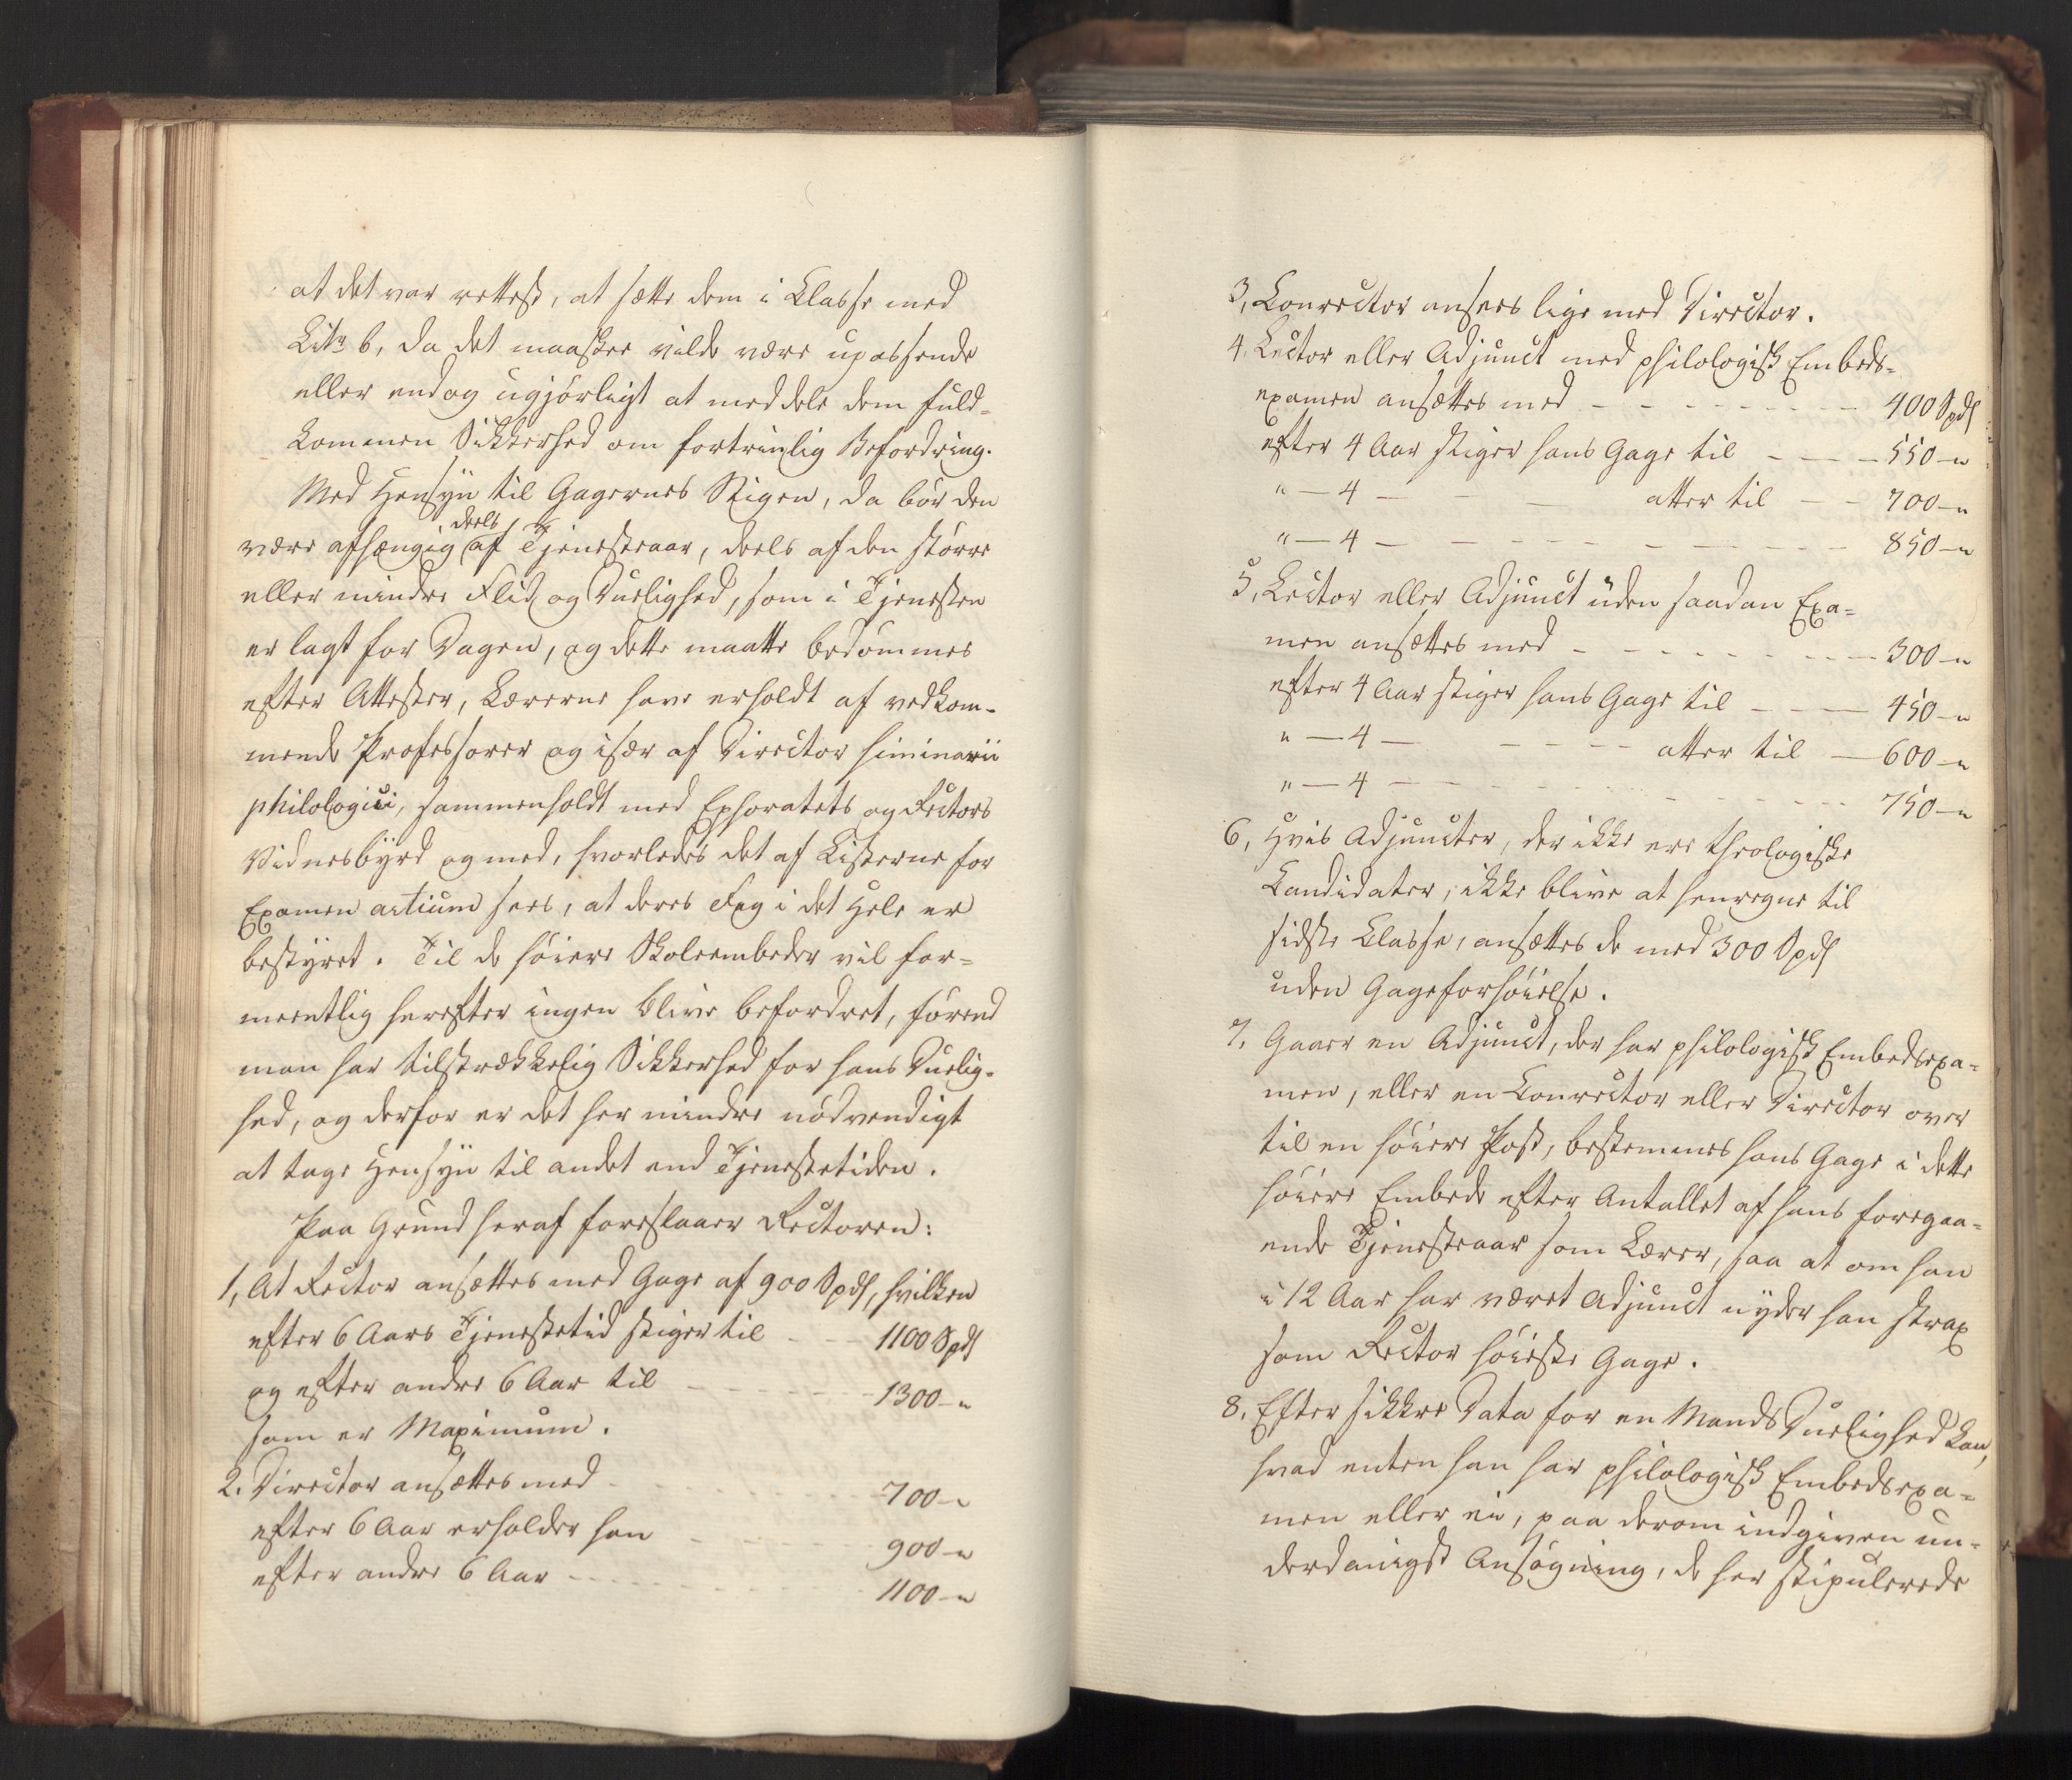 at det var rettest, at sætte dem i Classe med
Litr b, da det maaskee vilde være upassende
eller endog ugjørligt at meddele dem fuld-
kommen Sikkerhed om fortrinlig Befordring.
Med Hensÿn til Gagernes Stigen, da bør den
være afhængig deels af Tjenesteaar, deels af den større
eller mindre Flid og Duelighed, som i Tjenesten
er lagt for Dagen, og dette maatte bedømmes
efter Attester, Lærerne have erholdt af vedkom-
mende Professorer og især af Director siminarii
philologici, sammenholdt med Ephoratets og Rectors
Vidnesbÿrd og med, hvorledes det af Listerne for
Examen artium sees, at deres Fag i det Hele er
bestÿret. Til de høiere Skoleembeder vil for-
meentlig herefter ingen blive befordret, førend
man har tilstrækkelig Sikkerhed for hans Duelig-
hed, og derfor er det her mindre nødvendigt
at tage Hensÿn til andet end Tjenestetiden.
Paa Grund heraf foreslaaer Rectoren:
1, At Rector ansættes med Gage af 900 Spd, hvilken
efter 6 Aars Tjenestetid stiger til - - 1100 Spd
og efter andre 6 Aar til - - - - 1300 - "
som er Maximum.
2. Director ansættes med - - - - 700 - "
efter 6 Aar erholder han - - - - 900 - "
efter andre 6 Aar - - - - 1100 - "
3, Conrector ansees lige med Director.
4, Lector eller Adjunct med philologisk Embeds-
examen ansættes med - - - - 400 Spd
efter 4 Aar stiger hans Gage til - - - 550 - "
" - 4 - - - atter til - - 700 - "
" - 4 - - - - - - - 850 - "
5, Lector eller Adjunct uden saadan Exa-
men ansættes med - - - - 300 - "
efter 4 Aar stiger hans Gage til - - - 450 - "
" - 4 - - - - atter til - 600 - "
" - 4 - - - - - - - 750 - "
6, Hvis Adjuncter, der ikke ere theologiske
Candidater, ikke blive at henregne til
sidste Classe, ansættes de med 300 Spd
uden Gageforhøielse.
7, Gaaer en Adjunct, der har philologisk Embedsexa-
men, eller en Conrector eller Director over
til en høiere Post, bestemmes hans Gage i dette
høiere Embede efter Antallet af hans foregaa-
ende Tjenesteaar som Lærer, saa at om han
i 12 Aar har været Adjunct nÿder han strax
som Rector høieste Gage.
8, Efter sikkre Data for en Mands Duelighed kan,
hvad enten han har philologisk Embedsexa-
men eller ei, paa derom indgiven un-
derdanigst Ansøgning, de her stipulerede